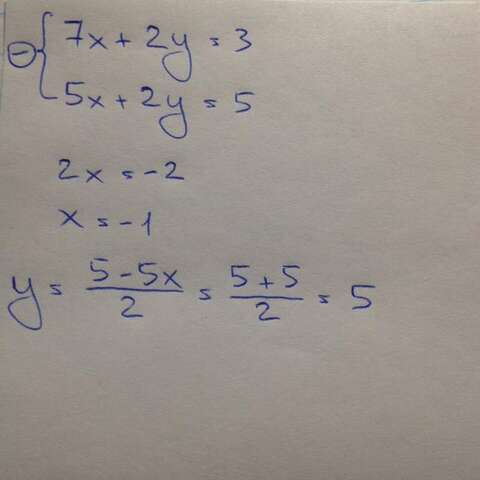 ⊖ { 7x + 2y = 3
5x + 2y = 5
2x = -2
x = -1
y = (5 - 5x)/2 = (5 + 5)/2 = 5